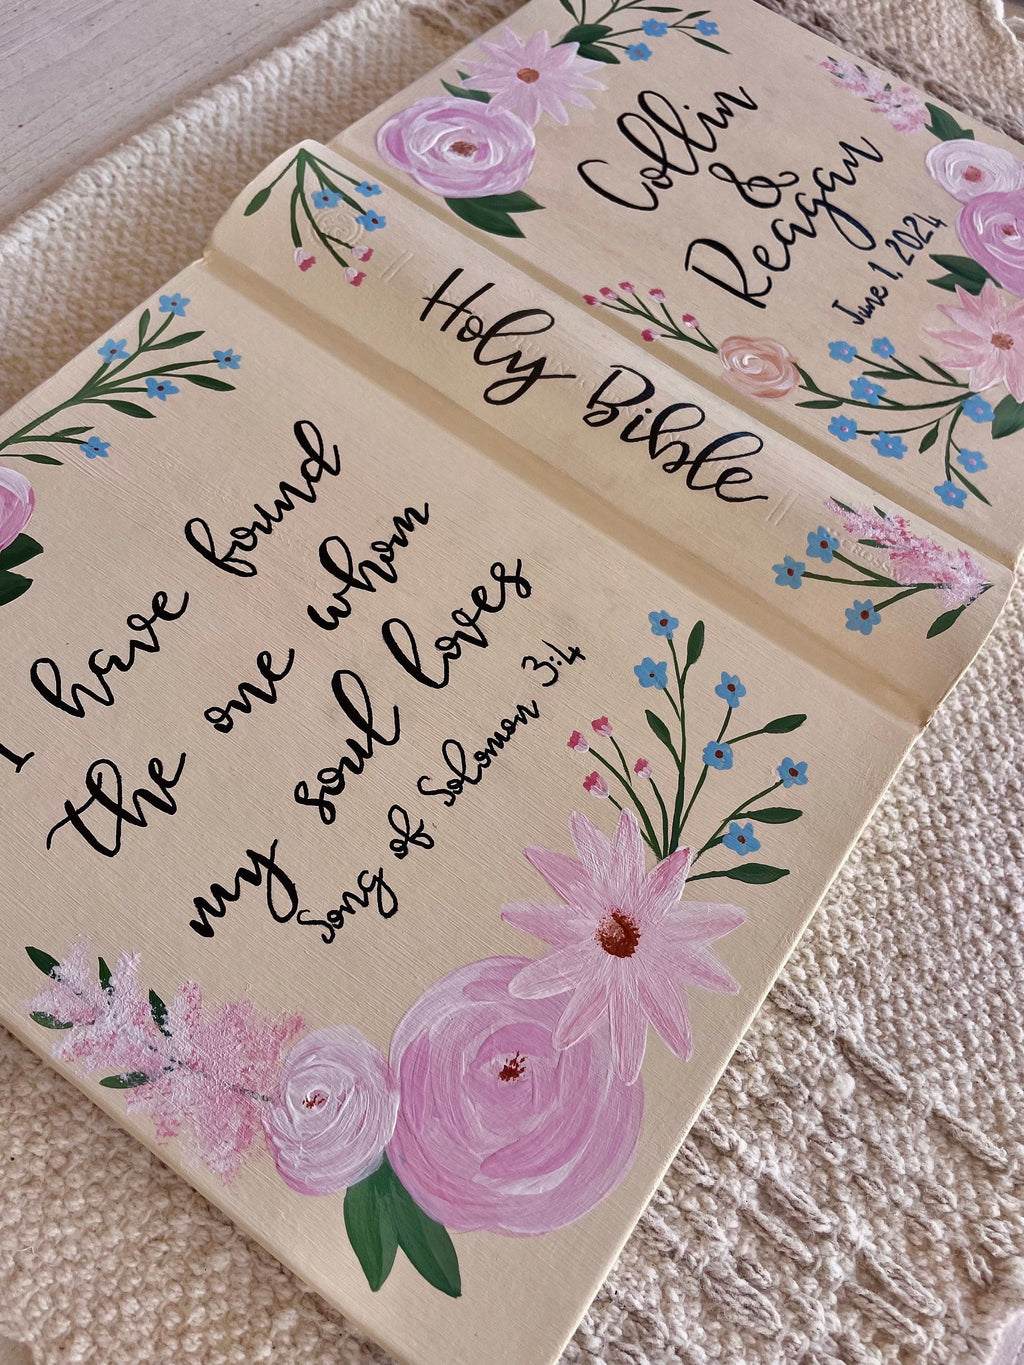 Collin
&
Reagan
June 1, 2024
Holy Bible
I have found
the one whom
my soul loves
Song of Solomon 3:4